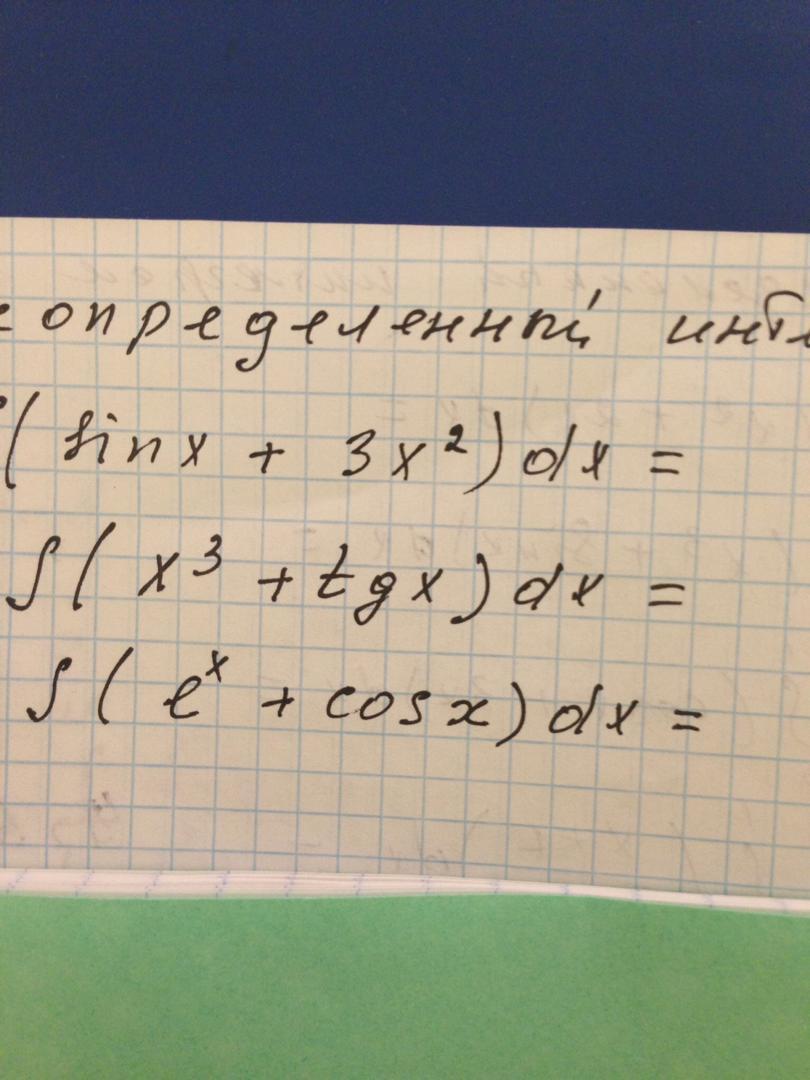 еопределенный инте
∫( sinx + 3x²) dx =
∫( x³ + tgx) dx =
∫( eˣ + cosx) dx =